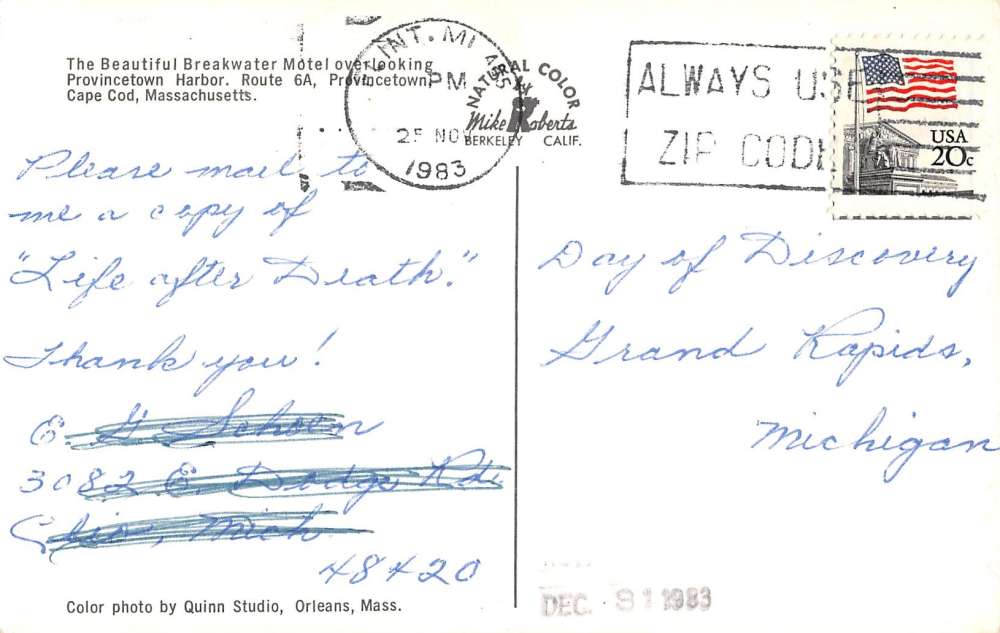 The Beautiful Breakwater Motel overlooking
Provincetown Harbor. Route 6A, Provincetown,
Cape Cod, Massachusetts.
NATURAL COLOR
by
Mike Roberts
BERKELEY CALIF.
FLINT. MI 485
PM
25 NOV
1983
ALWAYS USE
ZIP CODE
USA
20c
Please mail to
me a copy of
"Life after Death."
Thank you!
E G Schoen
3082 E. Dodge Rd.
Clio, Mich
48420
Day of Discovery
Grand Rapids,
Michigan
Color photo by Quinn Studio, Orleans, Mass.
DEC. 1983